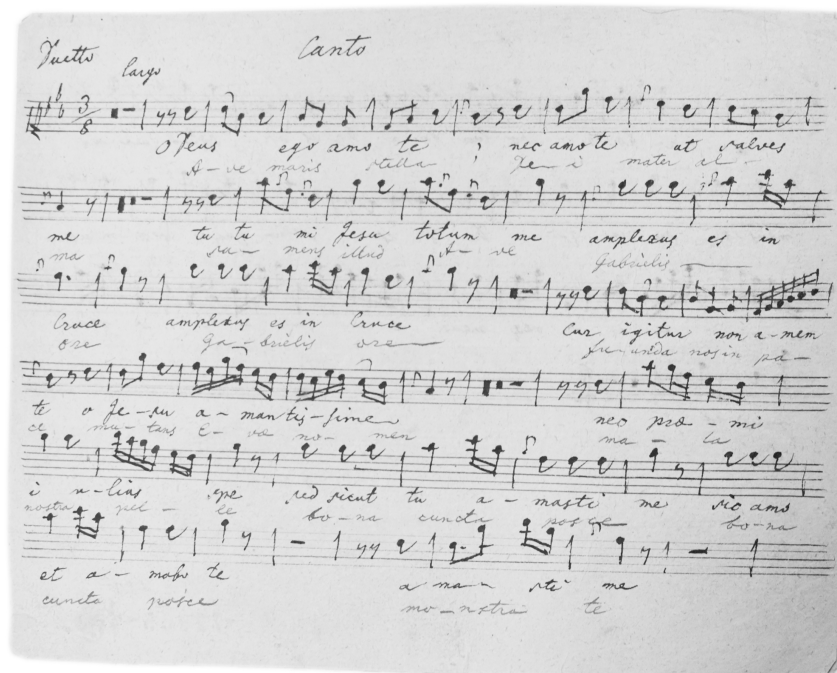 Duetto Largo Canto
3/8
O Deus ego amo te , nec amo te ut salves
A-ve maris stella De-i mater al-
me tu tu mi Jesu totum me amplexus es in
ma su-mens illud A-ve Gabrielis
Cruce amplexus es in Cruce Cur igitur non a-mem
ore Ga-brielis ore funda nos in pa-
te o Je-su a-mantis-sime nec pro-mi
ce mu-tans E-væ no-men ma-la
i n-lius spe sed sicut tu a-masti me sic amo
nostra pel-le bo-na cuncta posce bo-na
et a-mabo te a ma-sti me
cuncta posce mo-nstra te